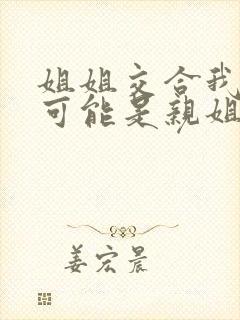 姐姐交合我
可能是親姐
姜宏晨